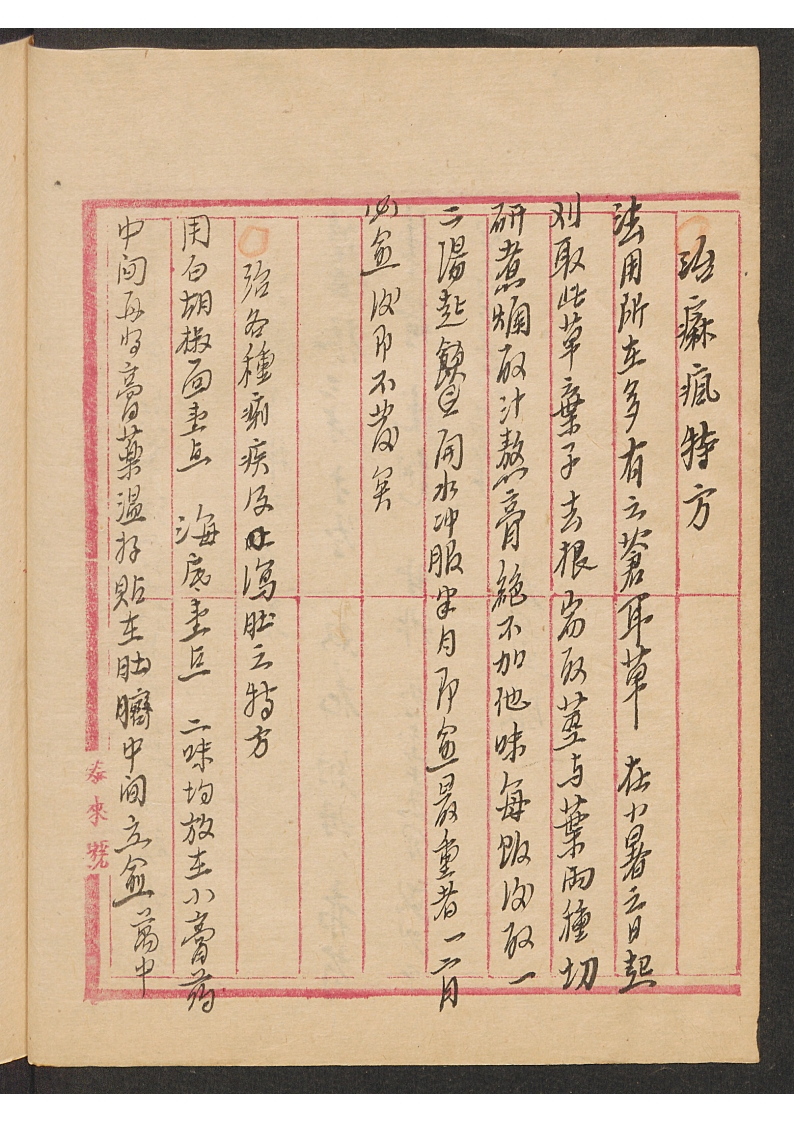 治痲瘋特方
法用所在多有之蒼耳草 在小暑之日起
刈取此草棄子去根耑取莖与葉两種切
研煮爛取汁熬膏絶不加他味每飯後取一
二湯匙 開水冲服半月即愈最重者一二月
必愈後即不發矣
治各種痢疾及吐瀉肚之特方
用白胡椒面壹点 海底壹点 二味均放在小膏药
中间再将膏藥温好貼在肚臍中间立愈萬中
泰來號